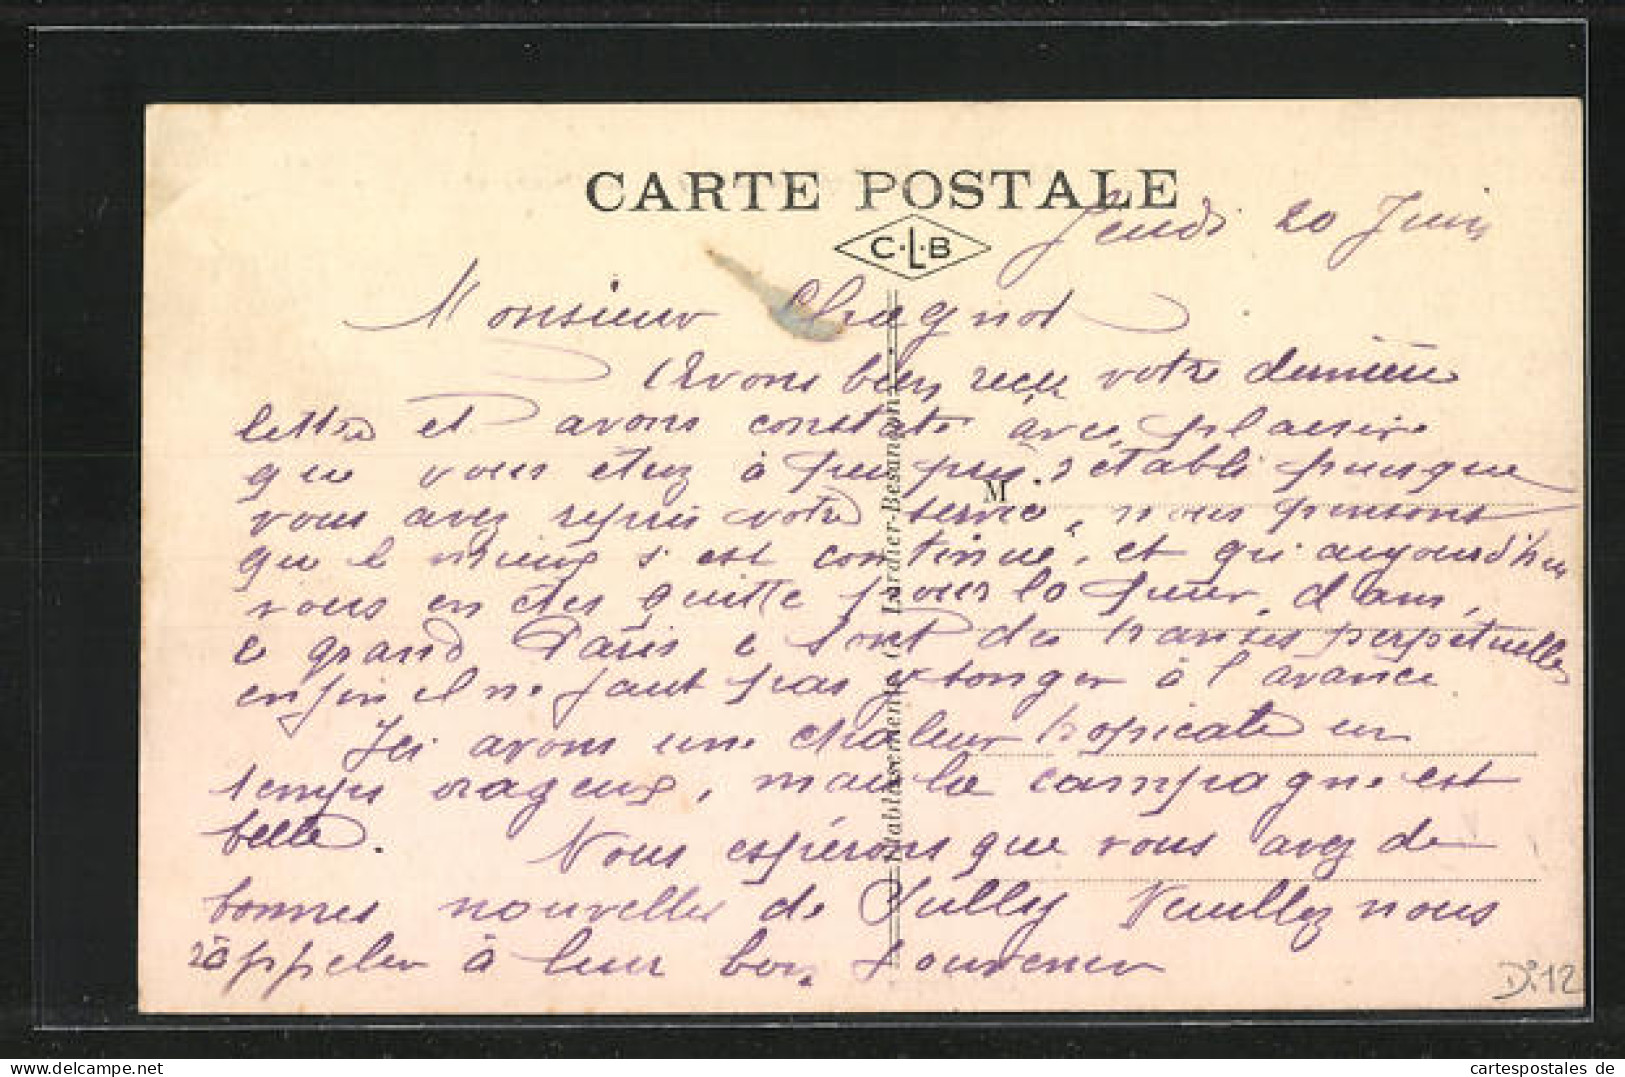 CARTE POSTALE
C.L.B
Jeudi 20 Juin
Monsieur Chagnot
Avons bien reçu votre dernière
lettre et avons constaté avec plaisir
que vous étiez à peu près rétabli puisque
vous avez repris votre service, nous pensons
que le mieux s'est continué, et qu'aujourd'hui
vous en êtes quitte pour la peur, dans
ce grand Paris ce sont des transes perpétuelles
enfin il ne faut pas y songer à l'avance
Ici avons une chaleur tropicale un
temps orageux, mais la campagne est
belle. Nous espérons que vous avez de
bonnes nouvelles de Sully Veuillez nous
rappeler à leur bon souvenir
M.
Etablissements C. Lardier-Besançon
D.12
cartespostales de